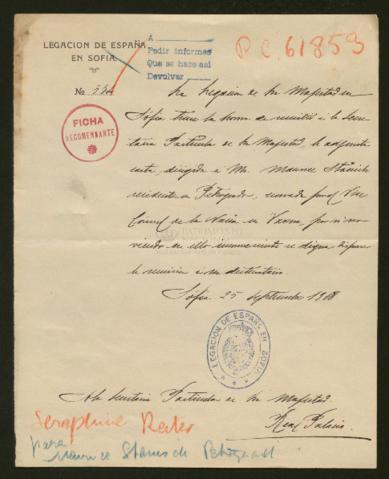 LEGACION DE ESPAÑA
EN SOFIA
A
Pedir informes
Que se hace así
Devolver
P.C. 61853
No
FICHA
RECOMENNANTE
La Legación de Su Majestad en
Sofía tiene la honra de remitir a la Secre-
taría Particular de Su Majestad, la adjunta
carta, dirigida a Mr. Maurice
residente en Petrogrado, enviada por el Vice
Consul de la Nación en Varna, por si no ve
en ello inconveniente se digne
la remisión a su destinatario.
Sofía 25 septiembre 1918
LEGACION DE ESPAÑA EN SOFIA
A la Secretaría Particular de Su Majestad
Real Palacio.
Seraphine Reiter
para
Maurice de Petrograd